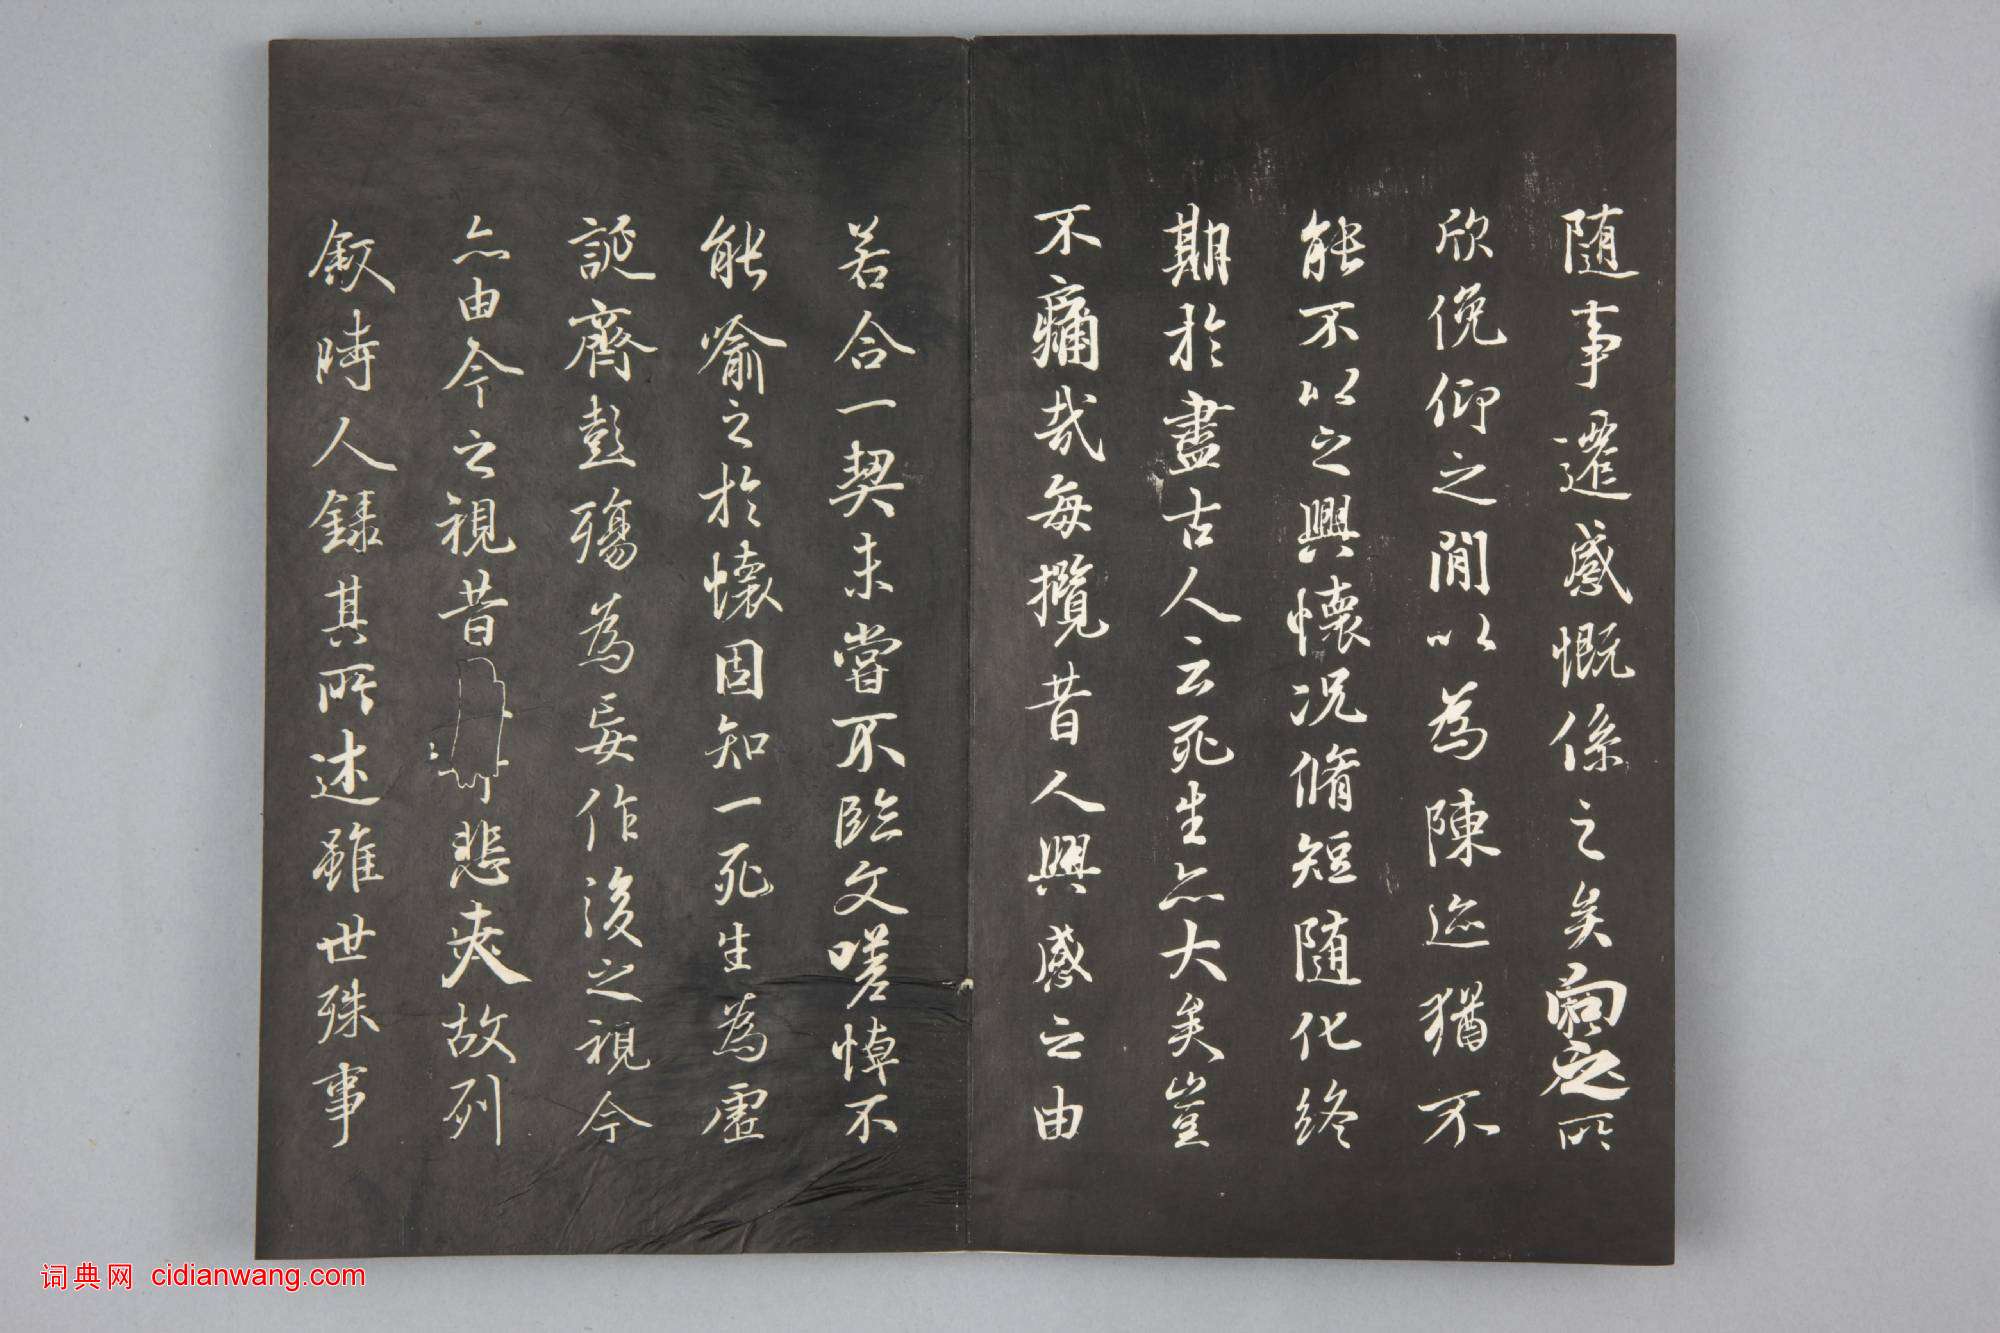 随事遷感慨係之矣向之所
欣俛仰之閒以為陳迹猶不
能不以之興懷况脩短随化終
期於盡古人云死生亦大矣豈
不痛哉每攬昔人興感之由
若合一契未嘗不臨文嗟悼不
能喻之於懷固知一死生為虛
誕齊彭殤為妄作後之視今
亦由今之視昔悲夫故列
敘時人錄其所述雖世殊事
词典网 cidianwang.com